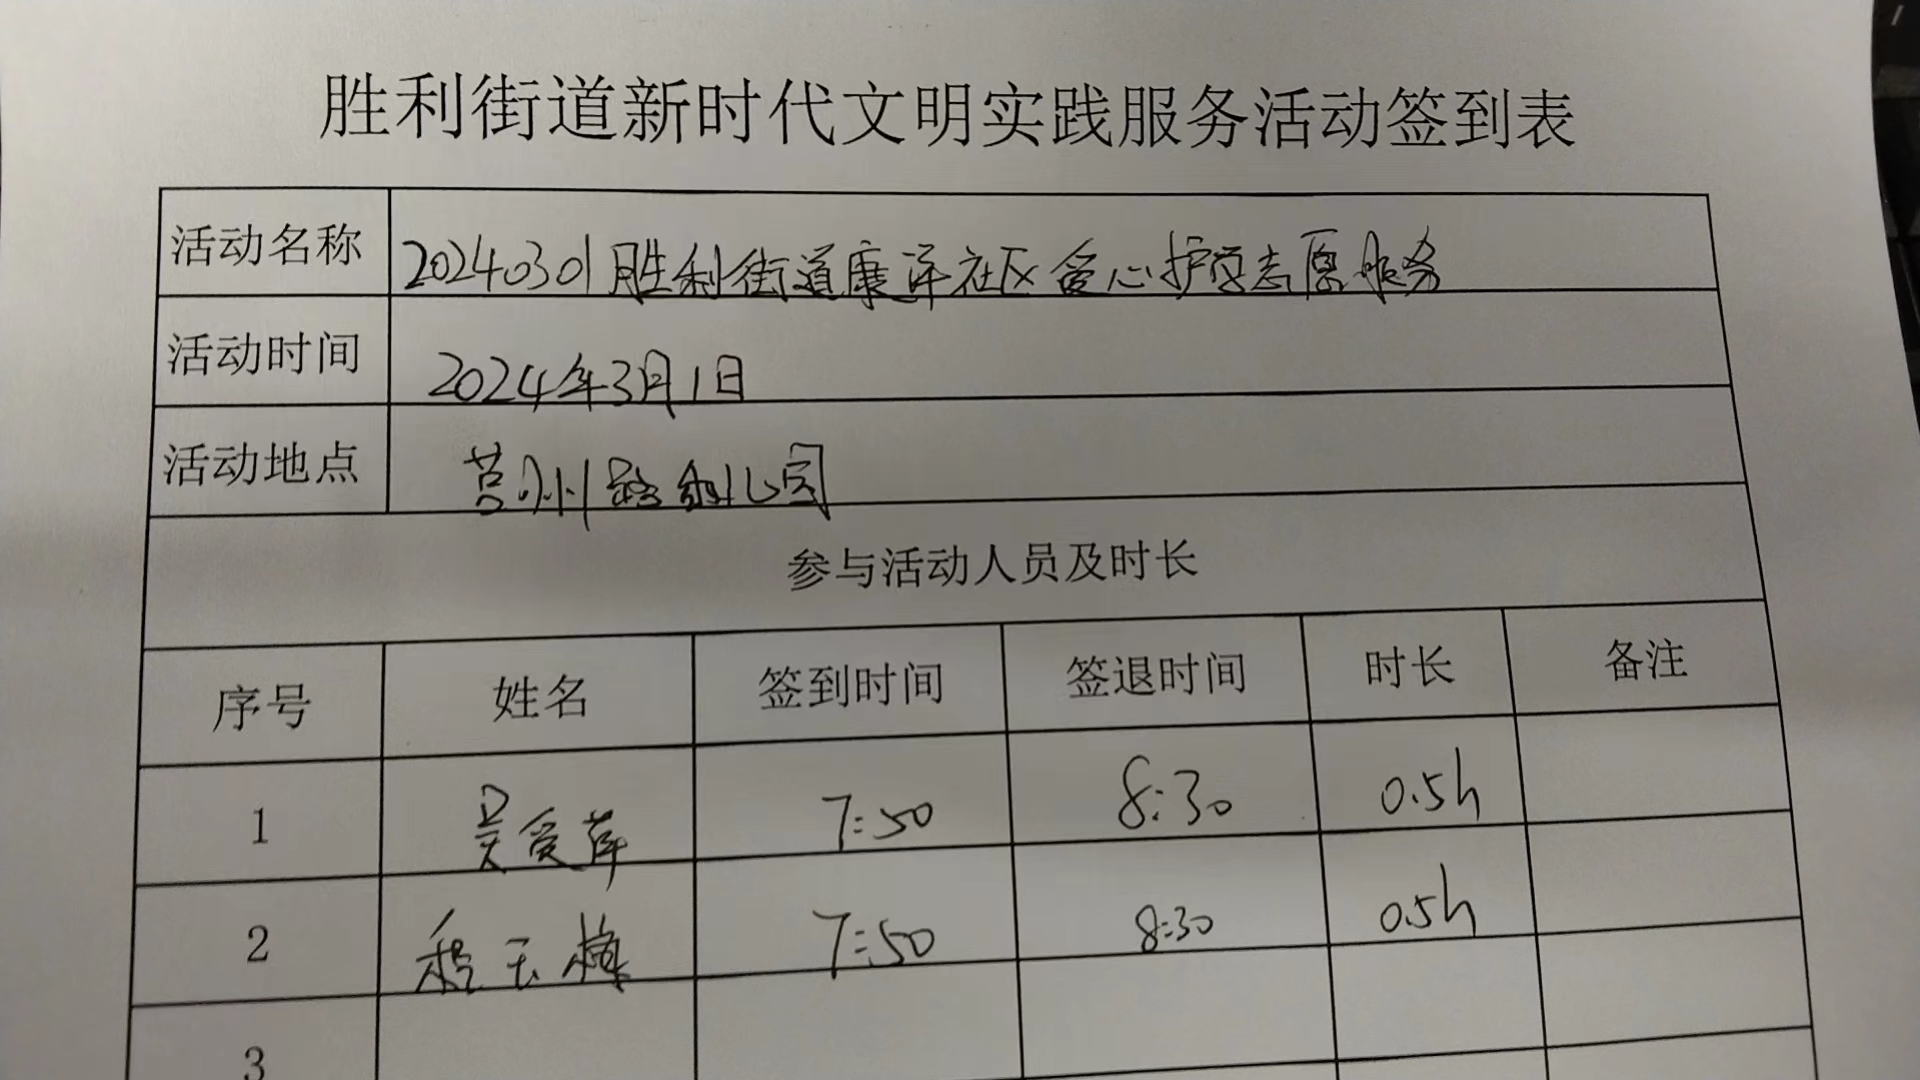 胜利街道新时代文明实践服务活动签到表
活动名称 20240301胜利街道康泽社区爱心护学志愿服务
活动时间 2024年3月1日
活动地点 莒州路幼儿园
参与活动人员及时长
序号 姓名 签到时间 签退时间 时长 备注
1 吴爱萍 7:50 8:30 0.5h
2 程玉梅 7:50 8:30 0.5h
3